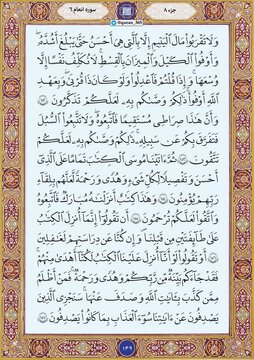 جزء ۸
@quran_365
سوره انعام ۶
وَلَا تَقْرَبُوا۟ مَالَ ٱلْيَتِيمِ إِلَّا بِٱلَّتِى هِىَ أَحْسَنُ حَتَّىٰ يَبْلُغَ أَشُدَّهُۥ
وَأَوْفُوا۟ ٱلْكَيْلَ وَٱلْمِيزَانَ بِٱلْقِسْطِ لَا نُكَلِّفُ نَفْسًا إِلَّا
وُسْعَهَا وَإِذَا قُلْتُمْ فَٱعْدِلُوا۟ وَلَوْ كَانَ ذَا قُرْبَىٰ وَبِعَهْدِ
ٱللَّهِ أَوْفُوا۟ ذَٰلِكُمْ وَصَّىٰكُم بِهِۦ لَعَلَّكُمْ تَذَكَّرُونَ ۝١٥٢
وَأَنَّ هَٰذَا صِرَٰطِى مُسْتَقِيمًا فَٱتَّبِعُوهُ وَلَا تَتَّبِعُوا۟ ٱلسُّبُلَ
فَتَفَرَّقَ بِكُمْ عَن سَبِيلِهِۦ ذَٰلِكُمْ وَصَّىٰكُم بِهِۦ لَعَلَّكُمْ
تَتَّقُونَ ۝١٥٣ ثُمَّ ءَاتَيْنَا مُوسَى ٱلْكِتَٰبَ تَمَامًا عَلَى ٱلَّذِىٓ
أَحْسَنَ وَتَفْصِيلًا لِّكُلِّ شَىْءٍ وَهُدًى وَرَحْمَةً لَّعَلَّهُم بِلِقَآءِ
رَبِّهِمْ يُؤْمِنُونَ ۝١٥٤ وَهَٰذَا كِتَٰبٌ أَنزَلْنَٰهُ مُبَارَكٌ فَٱتَّبِعُوهُ
وَٱتَّقُوا۟ لَعَلَّكُمْ تُرْحَمُونَ ۝١٥٥ أَن تَقُولُوٓا۟ إِنَّمَآ أُنزِلَ ٱلْكِتَٰبُ
عَلَىٰ طَآئِفَتَيْنِ مِن قَبْلِنَا وَإِن كُنَّا عَن دِرَاسَتِهِمْ لَغَٰفِلِينَ
۝١٥٦ أَوْ تَقُولُوا۟ لَوْ أَنَّآ أُنزِلَ عَلَيْنَا ٱلْكِتَٰبُ لَكُنَّآ أَهْدَىٰ مِنْهُمْ
فَقَدْ جَآءَكُم بَيِّنَةٌ مِّن رَّبِّكُمْ وَهُدًى وَرَحْمَةٌ فَمَنْ أَظْلَمُ
مِمَّن كَذَّبَ بِـَٔايَٰتِ ٱللَّهِ وَصَدَفَ عَنْهَا سَنَجْزِى ٱلَّذِينَ
يَصْدِفُونَ عَنْ ءَايَٰتِنَا سُوٓءَ ٱلْعَذَابِ بِمَا كَانُوا۟ يَصْدِفُونَ ۝١٥٧
۱۴۹